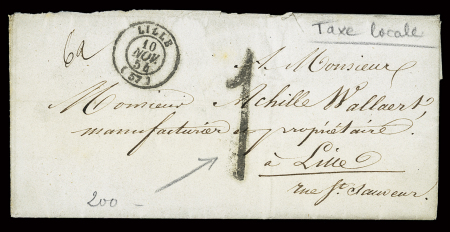 Taxe locale
6a
LILLE
10
NOV.
54
(57)
A Monsieur
Monsieur Achille Wallaert,
manufacturier & propriétaire
à Lille
rue St. Sauveur.
1
200 -